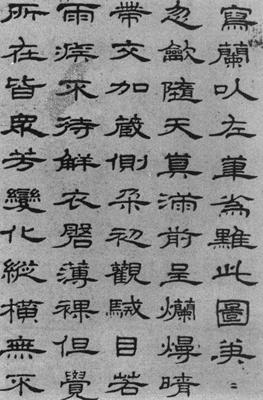 寫蘭以左筆為難此圖英〻
忽歛隨天真滿前呈爛熳晴
帶交加蔵側朵初觀駴目若
雨疾不待解衣磬薄裸但覺
所在皆眾芳變化縱橫無不